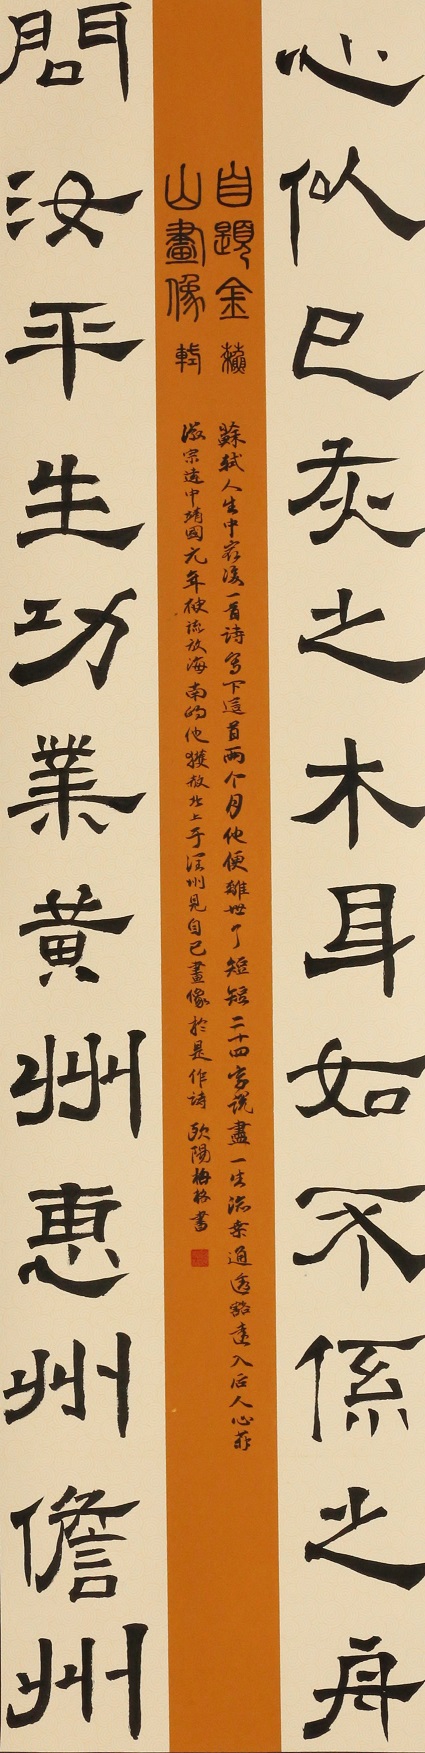 心似已灰之木耳如不係之舟
自題金
山畫像
蘇
軾
蘇軾人生中最後一首詩寫下這首兩个月他便離世了短短二十四字說盡一生流通透豁達入后人心
徽宗建中靖國元年被流放海南的他獲赦北上于州見自己畫像於是作詩 歐陽梅格書
問汝平生功業黃州惠州儋州